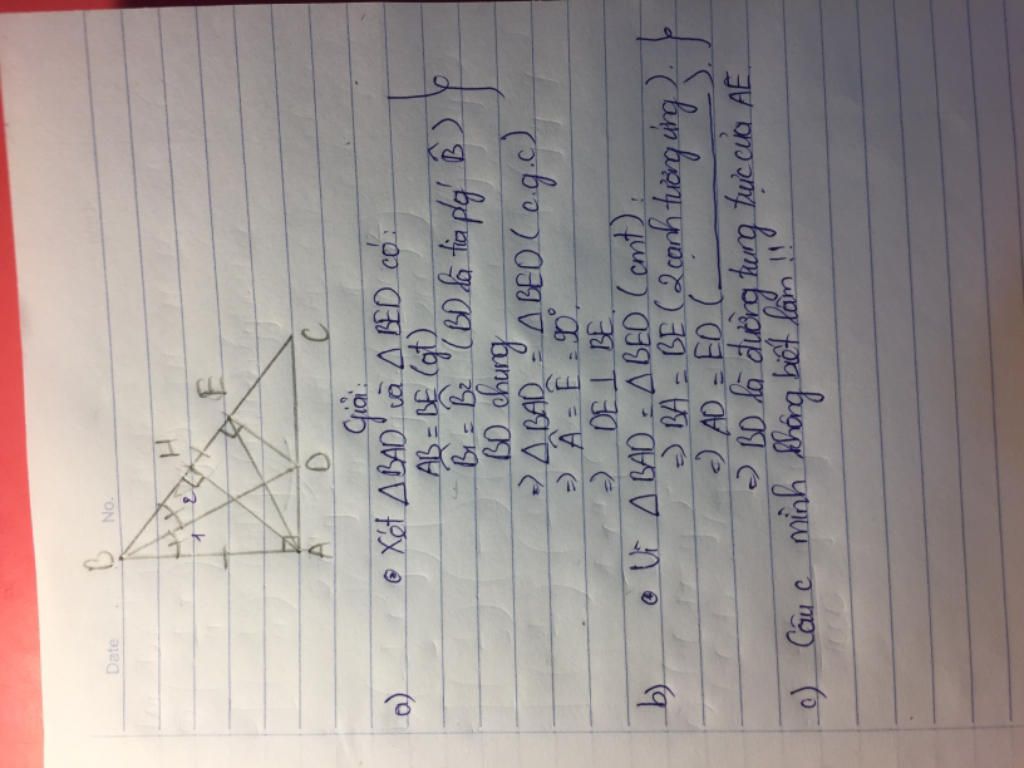 Date
No.
B
H
E
1
2
A
D
C
Giải:
a) Xét △BAD và △BED có:
AB = BE (gt)
B̂₁ = B̂₂ (BD là tia pgí B̂)
BD chung
=> △BAD = △BED (c.g.c)
=> Â = Ê = 90°
=> DE ⊥ BE
b) Vì △BAD = △BED (cmt):
=> BA = BE (2 cạnh tương ứng).
=> AD = ED ( ).
=> BD là đường trung trực của AE.
c) Câu c mình không biết làm!!